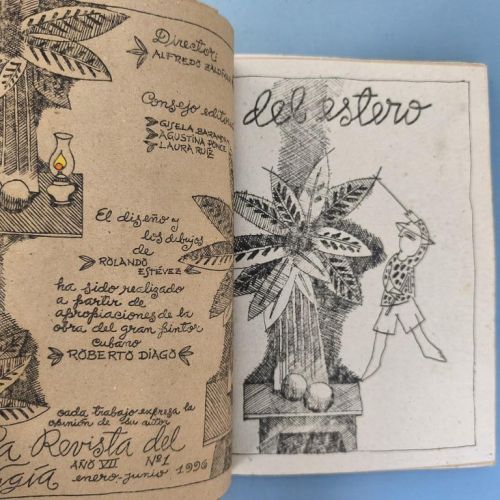 Director:
ALFREDO
Consejo
GISELA
AGUSTINA PONCE
LAURA RUIZ
El diseño y
los dibujos
de
ROLANDO
ESTÉVEZ
ha sido realizado
a partir de
apropiaciones de la
obra del gran pintor
cubano
ROBERTO DIAGO
cada trabajo expresa la
opinión de su autor
Revista del
AÑO VII Nº 1
enero-junio 1996
del estero